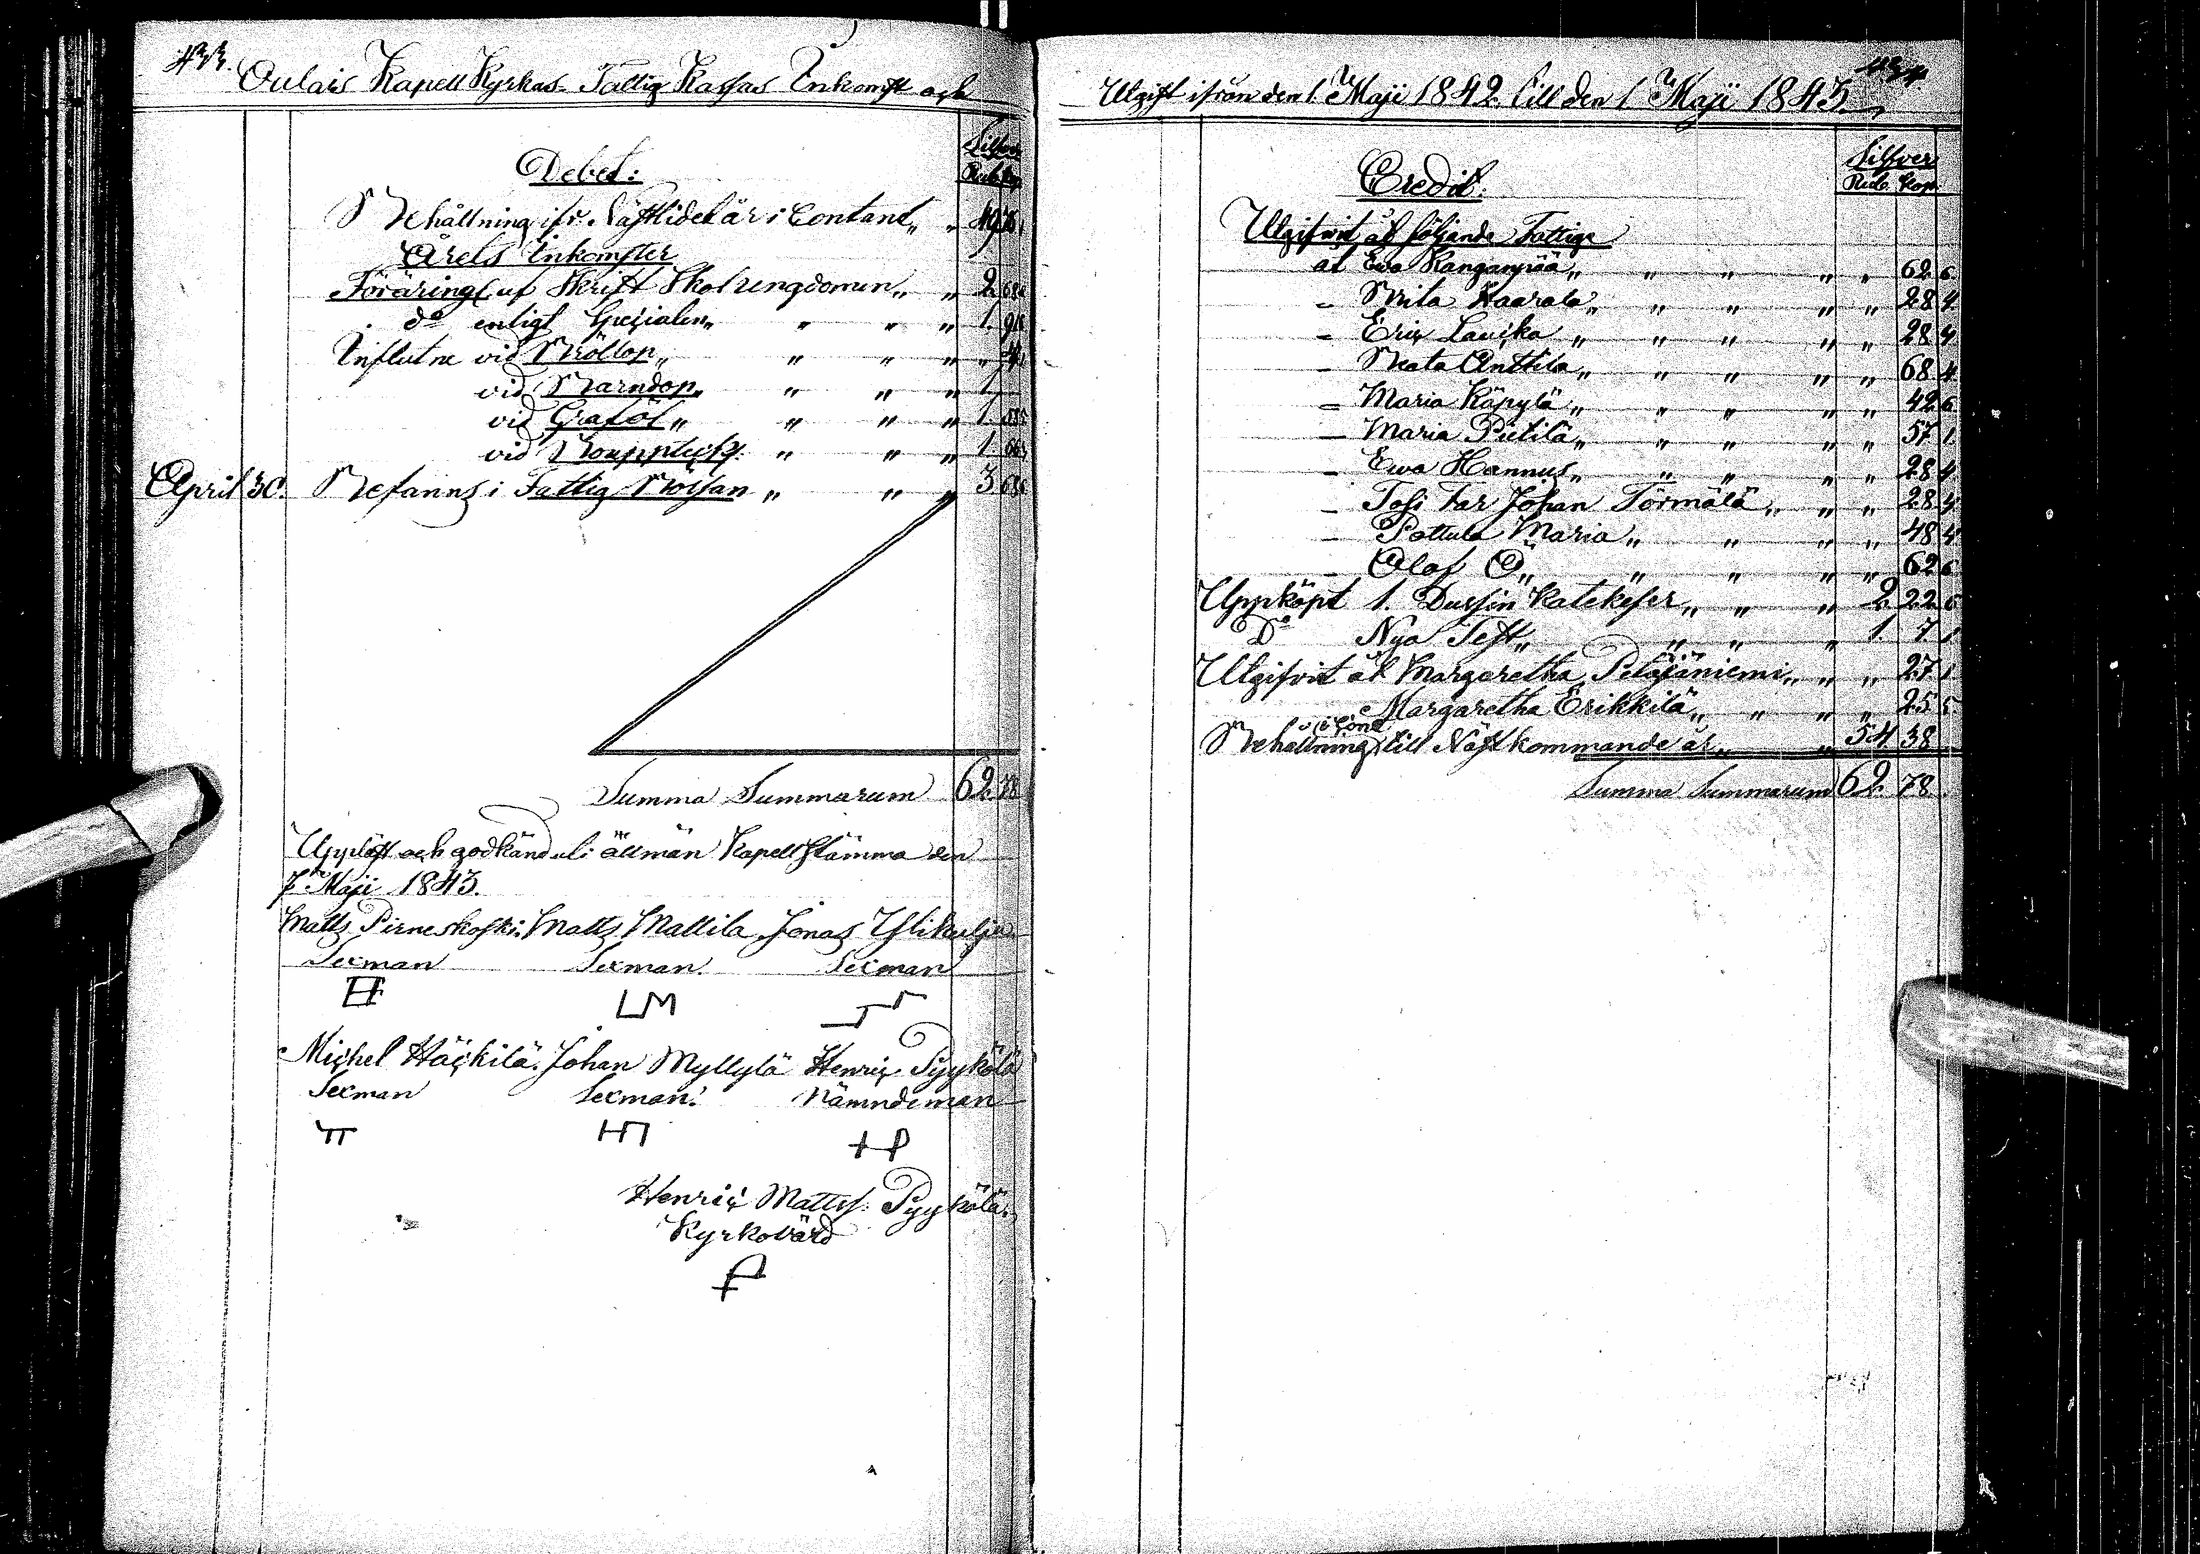 433.
Oulais Kapell Kyrkas Fattig Kassas Inkomst och
Debet:
Silfver
Rub. Kop.
Behållning ifr. Nästlidet år i Contant „ „ 49
Årets Inkomster
Föräring af Skrift Skol Ungdomen „ „ 2 68
do enligt Specialen „ „ „ „ 1
Influtne vid Bröllop „ „ „ „
vid Barndop „ „ „ 1
vid Graföl „ „ „ „ 1
vid „ „ „ 1
April 30. Befanns i Fattig Bössan „ „ „ 3 68
Summa Summarum 62. 78
Uppläst och godkänd uti allmän Kapell Stämma den
7 Maji 1843.
Matts Pirneskoski Matts Mattila Jonas Ylikulju
Sexman Sexman. Sexman
Michel Häckilä. Johan Myllylä Henric Pyykölä
Sexman Sexman. Nämndeman
Henric Mattss. Pyykölä.
Kyrkovärd
Utgift ifrån den 1 Maji 1842. till den 1 Maji 1843.
Credit:
Silfver
Rub. Kop.
Utgifvit åt följande Fattige
åt Ewa Kangaspää „ „ „ „ „ 62 6
– Brita Haarala „ „ „ „ „ 28 4
– Eric Lauika „ „ „ „ „ 28 4
– Beata Anttila „ „ „ „ „ 68 4
– Maria Käpylä „ „ „ „ „ 42 6
– Maria Pietilä „ „ „ „ „ 57 1
– Ewa Hannus „ „ „ „ „ 28 4
– Johan Törmälä „ „ „ 28 4
– Pottula Maria „ „ „ „ 48 4
– Olof O „ „ „ „ „ 62 6
Uppköpt 1. Dussin Katekeser „ „ „ 2 22 6
Do Nya Test „ „ „ „ 1. 7. 1
Utgifvit åt Margaretha Petäjäniemi „ „ „ 27 1
Margaretha Erikkilä „ „ „ „ 25 5
Behållning i Cont till Nästkommande år „ „ 54 38
Summa Summarum 62. 78